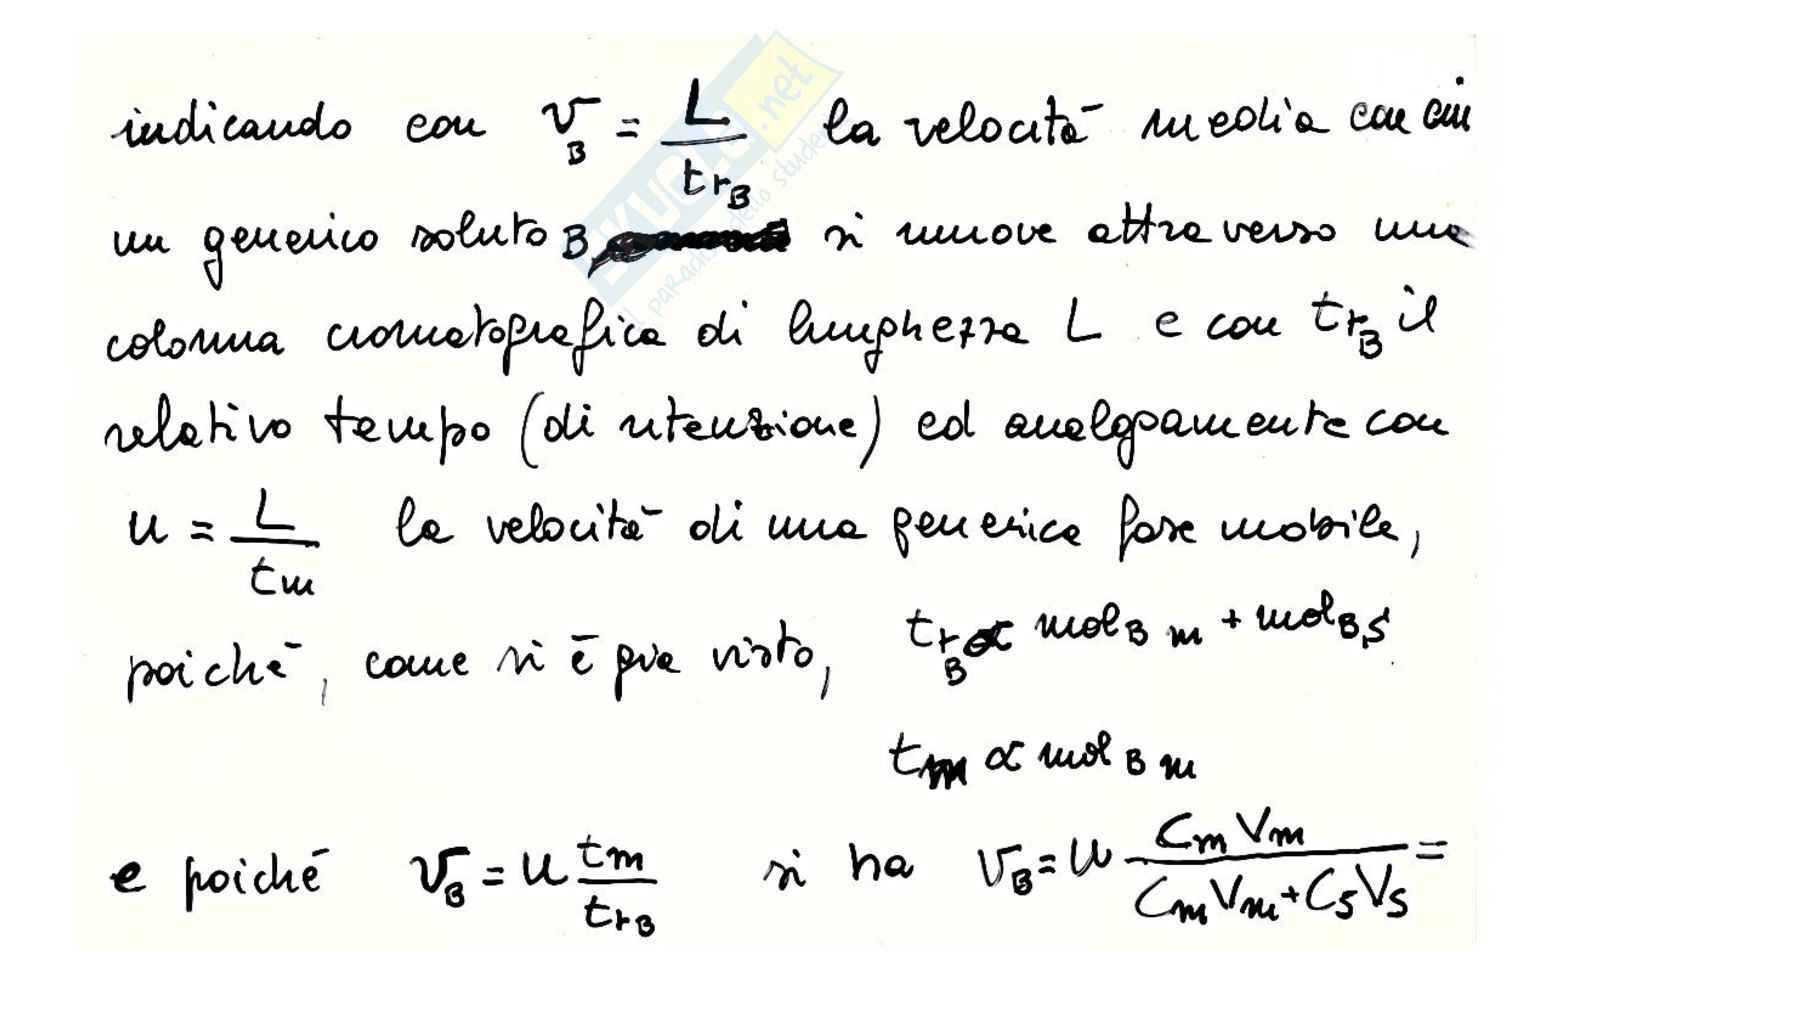 indicando con v_B = L / t_rB la velocità media con cui
un generico soluto B si muove attraverso una
colonna cromatografica di lunghezza L e con t_rB il
relativo tempo (di ritenzione) ed analogamente con
u = L / t_m la velocità di una generica fase mobile,
poiché, come si è già visto, t_rB ∝ mol_B m + mol_B,S
t_m ∝ mol_B m
e poiché v_B = u t_m / t_rB si ha v_B = u C_m V_m / C_m V_m + C_S V_S =
SKUOLA.net
il paradiso dello studente